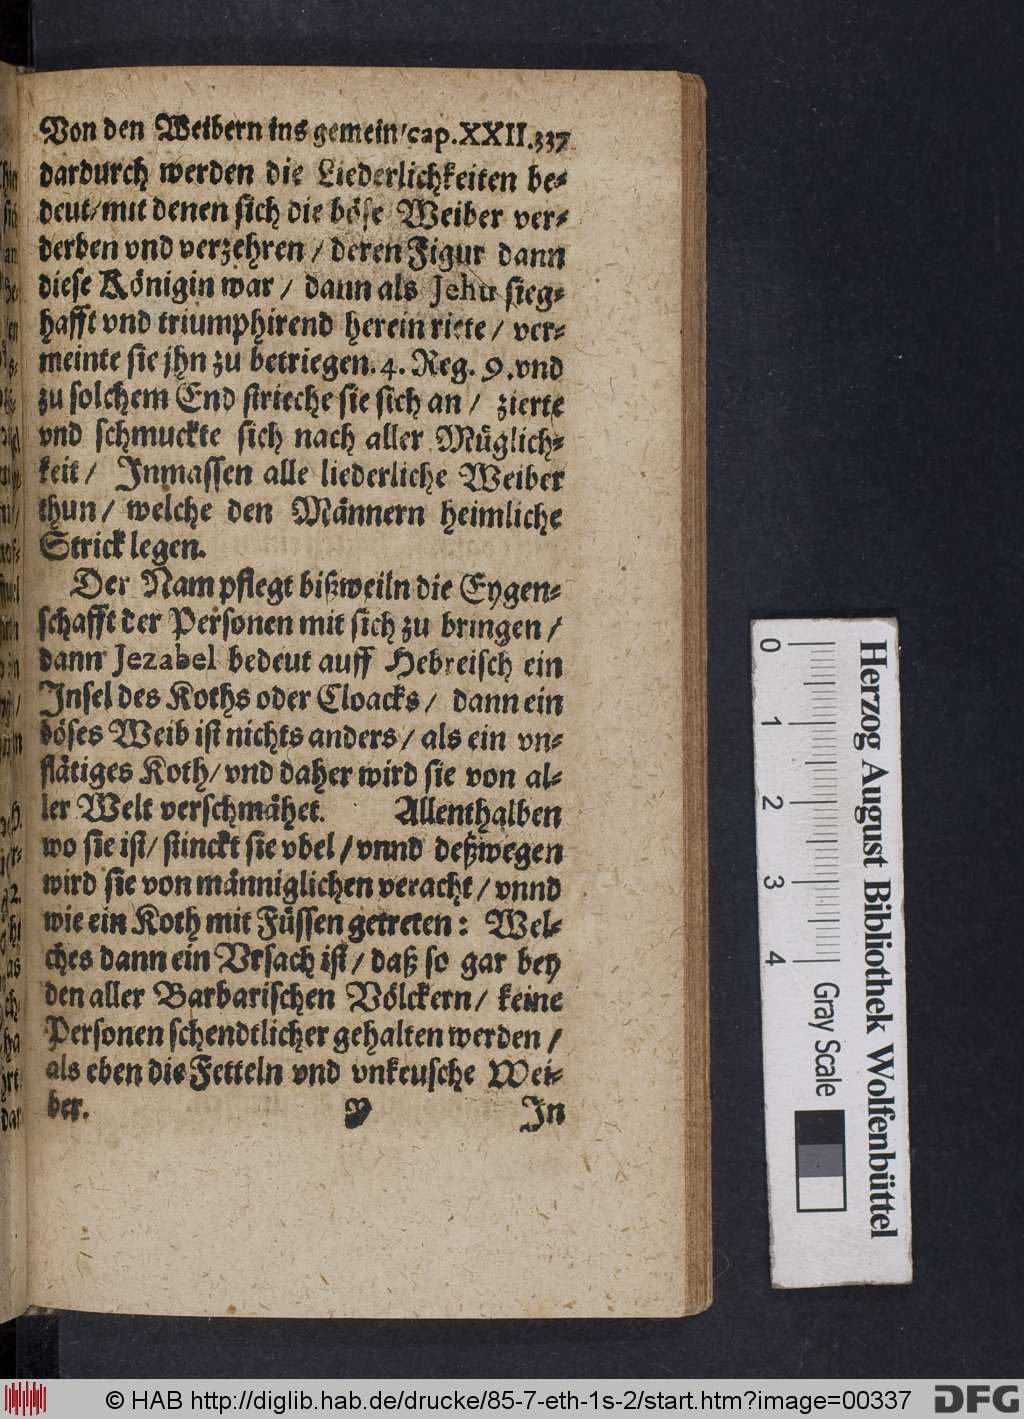 Von den Weibern ins gemein/cap.XXII.337
dardurch werden die Liederlichkeiten be-
deut/mit denen sich die böse Weiber ver-
derben vnd verzehren / deren Figur dann
diese Königin war / dann als Jehu sieg-
hafft vnd triumphirend herein riete / ver-
meinte sie jhn zu betriegen. 4. Reg. 9. vnd
zu solchem End strieche sie sich an / zierte
vnd schmuckte sich nach aller Müglich-
keit / Inmassen alle liederliche Weiber
thun / welche den Männern heimliche
Strick legen.
Der Nam pflegt bißweiln die Eygen-
schafft der Personen mit sich zu bringen /
dann Jezabel bedeut auff Hebreisch ein
Insel des Koths oder Cloacks / dann ein
böses Weib ist nichts anders / als ein vn-
flätiges Koth / vnd daher wird sie von al-
ler Welt verschmähet. Allenthalben
wo sie ist / stinckt sie vbel / vnnd deßwegen
wird sie von männiglichen veracht / vnnd
wie ein Koth mit Füssen getreten: Wel-
ches dann ein Vrsach ist / daß so gar bey
den aller Barbarischen Völckern / keine
Personen schendtlicher gehalten werden /
als eben die Fetteln vnd vnkeusche Wei-
ber. Y In
0 1 2 3 4 Gray Scale
Herzog August Bibliothek Wolfenbüttel
© HAB http://diglib.hab.de/drucke/85-7-eth-1s-2/start.htm?image=00337
DFG